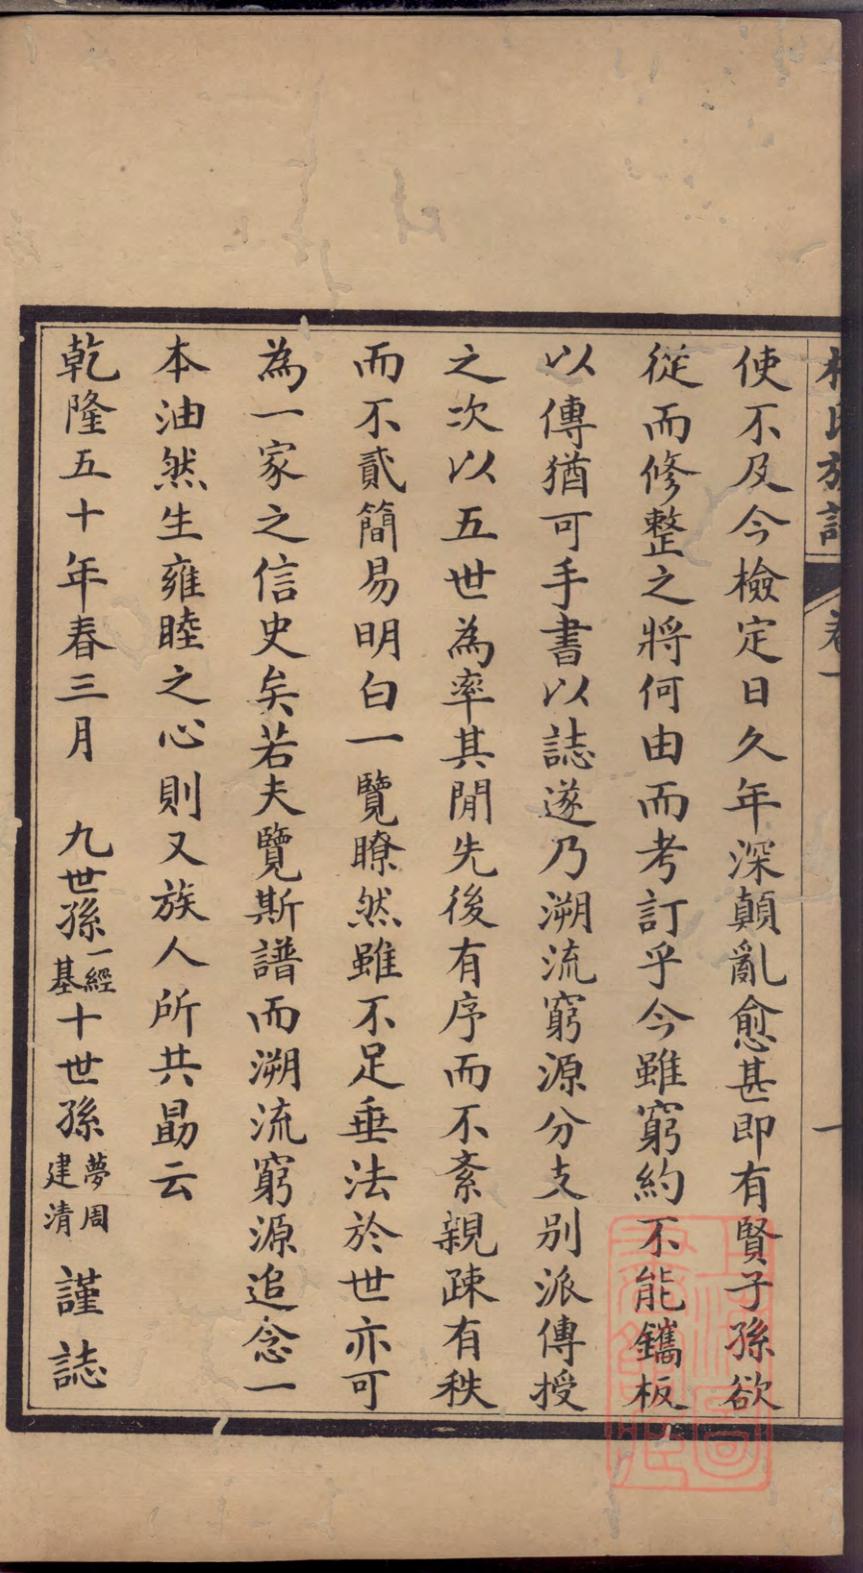 氏族譜
卷一
一
使不及今檢定日久年深顛亂愈甚即有賢子孫欲
從而修整之將何由而考訂乎今雖窮約不能鐫板
以傳猶可手書以誌遂乃溯流窮源分支別派傳授
之次以五世為率其閒先後有序而不紊親疎有秩
而不貳簡易明白一覽瞭然雖不足垂法於世亦可
為一家之信史矣若夫覽斯譜而溯流窮源追念一
本油然生雍睦之心則又族人所共勗云
乾隆五十年春三月 九世孫一經基十世孫夢周建清謹誌